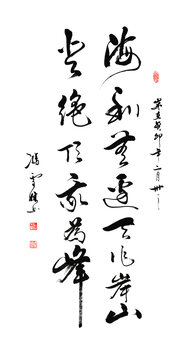 海到无边天作岸山
登绝顶我为峰
癸卯年二月